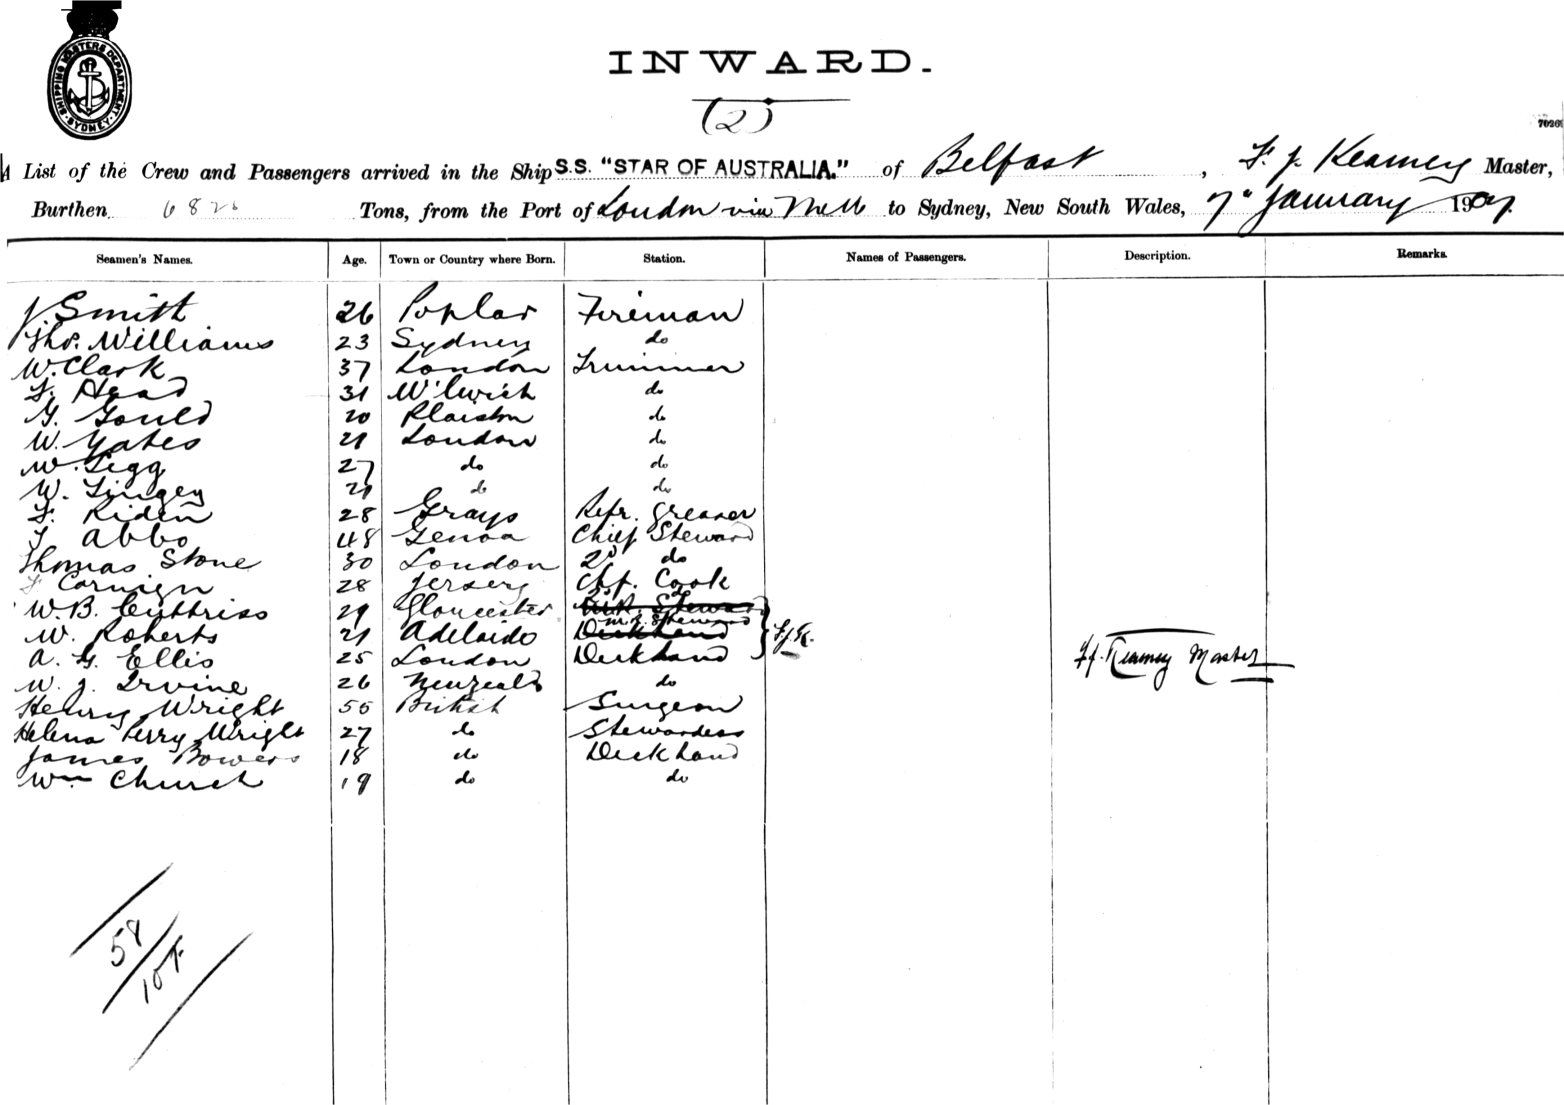 SHIPPING MASTERS DEPARTMENT
SYDNEY
INWARD.
(2)
A List of the Crew and Passengers arrived in the Ship S.S. "STAR OF AUSTRALIA." of Belfast, F. J. Kearney Master,
Burthen 6826 Tons, from the Port of London via Melb to Sydney, New South Wales, 7th January 1907.
Seamen's Names. Age. Town or Country where Born. Station. Names of Passengers. Description. Remarks.
J Smith 26 Poplar Fireman
Thos. Williams 23 Sydney do
W. Clark 37 London Trimmer
F. Head 31 W'lwich do
G. Gould 20 Plaistow do
W. Yates 21 London do
W. Tegg 27 do do
W. Tingey 21 do do
F. Riden 28 Grays Refr. Greaser
J Abbo 48 Genoa Chief Steward
Thomas Stone 30 London 2d do
28 Jersey Chf. Cook
W. B. 29 Gloucester
W. Roberts 21 Adelaide M.R. Steward
A. G. Ellis 25 London Deckhand
F. J. Kearney Master
W. J. Irvine 26 do
Henry Wright 55 British Surgeon
Helena Perry Wright 27 do Stewardess
James Bowers 18 do Deckhand
Wm Church 19 do do
58